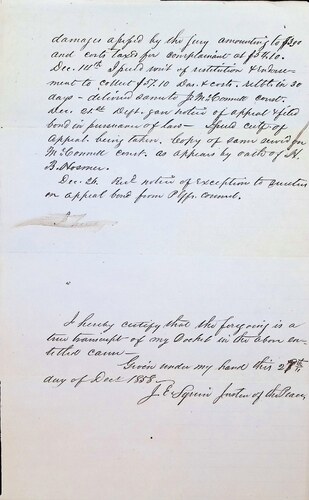 damages assessed by the jury amounting to $200
and costs taxed for complainant at $57.10.
Dec. 14th I issued writ of restitution & endorse-
ment to collect $57.10 Dam. & costs. retble in 30
days - delivered same to J. McConnell const.
Dec. 21st Deft. gave notice of appeal & filed
bond in pursuance of law - Issued certf. of
appeal being taken. Copy of same served on
McConnell const. as appears by oath of H.
B. Hosmer.
Dec. 24. Recd notice of exception to sureties
on appeal bond from Plffs. counsel.
I hereby certify that the forgoing is a
true transcript of my Docket in the above en-
titled cause -
Given under my hand this 28th
day of Decr 1858.
J. E. Squire Justice of the Peace,